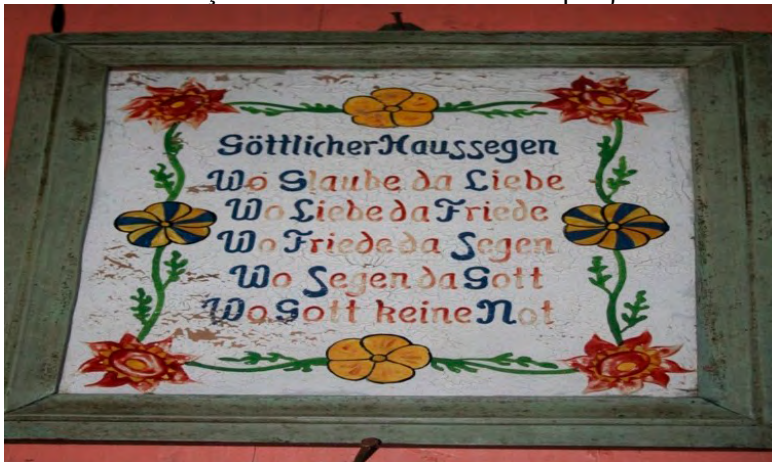 Göttlicher Haussegen
Wo Glaube da Liebe
Wo Liebe da Friede
Wo Friede da Segen
Wo Segen da Gott
Wo Gott keine Not